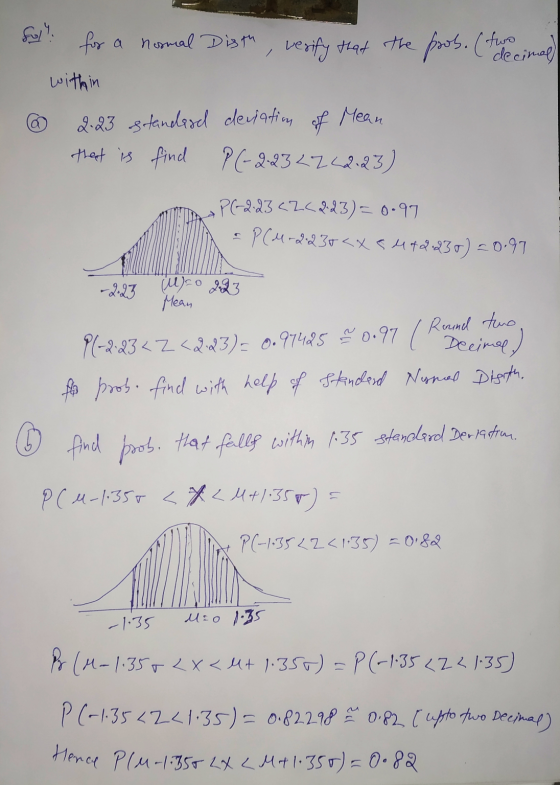 Solⁿ: for a normal Distⁿ, verify that the prob. (two decimal)
within
(a) 2.23 standard deviation of Mean
that is find P(-2.23<Z<2.23)
P(-2.23<Z<2.23) = 0.97
= P(μ-2.23σ<X<μ+2.23σ) = 0.97
-2.23 (μ)=0 2.23
Mean
P(-2.23<Z<2.23) = 0.97425 ≅ 0.97 (Round two Decimal)
prob. find with help of standard Normal Distn.
(b) find prob. that falls within 1.35 standard Deviation.
P(μ-1.35σ < X < μ+1.35σ) =
P(-1.35<Z<1.35) = 0.82
-1.35 μ=0 1.35
Pr(μ-1.35σ < X < μ+1.35σ) = P(-1.35<Z<1.35)
P(-1.35<Z<1.35) = 0.82298 ≅ 0.82 (upto two Decimal)
Hence P(μ-1.35σ <X < μ+1.35σ) = 0.82